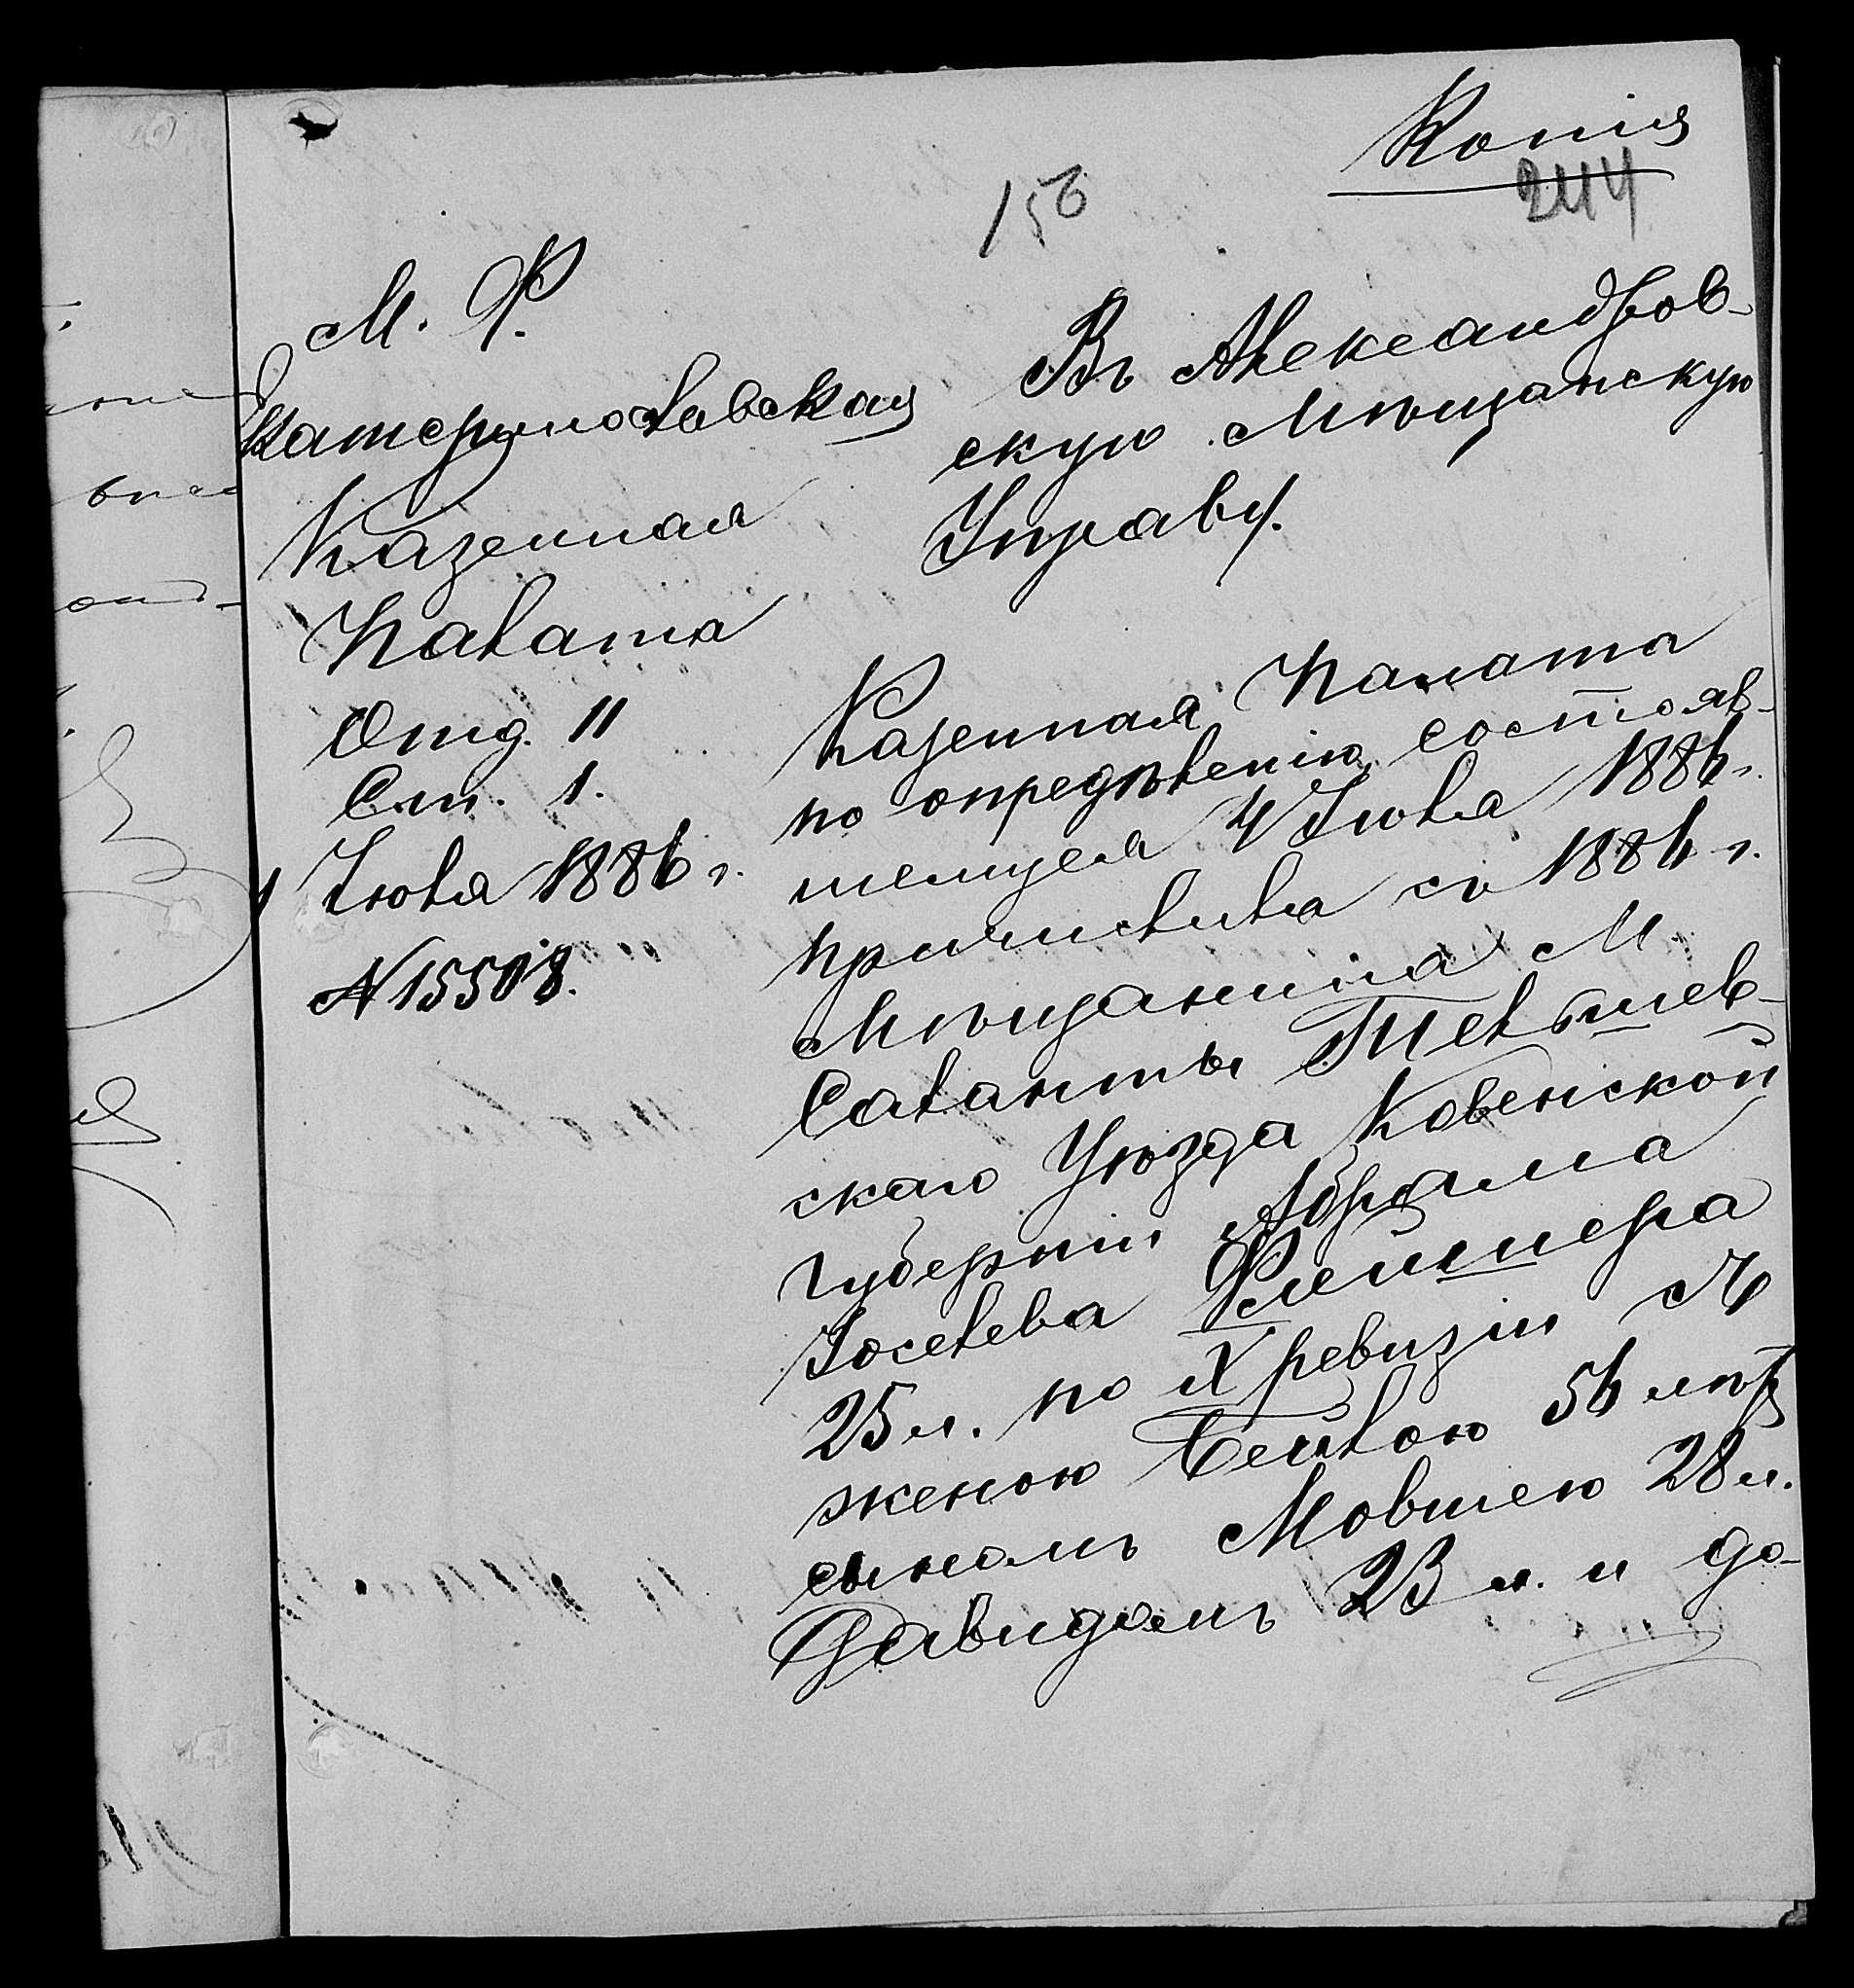 Копія
156
244
М. Ф.
Екатеринославская
Казенная
Палата
Отд. II
Ст. 1.
Іюля 1886 г.
№ 15508.
Въ Александров-
скую Мѣщанскую
Управу.
Казенная Палата
по опредѣленію, состояв-
шемуся 4 Іюля 1886 г.
причислила съ 1886 г.
Мѣщанина М.
Саланты Тельшев-
скаго Уѣзда Ковенской
губерніи Абрама
Іоселева
25 л. по X ревизіи съ
женою Бейлою 56 лѣтъ
сыномъ Мовшею 28 л.
Давидомъ 23 л. и до-